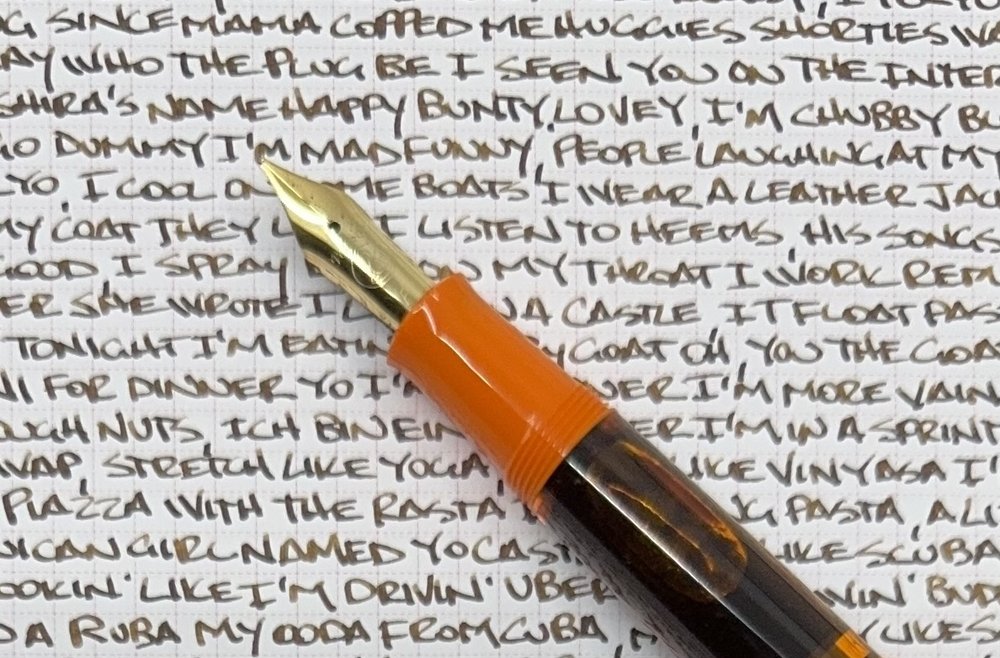 SINCE MAMA COPPED ME HUGGIES SHORTIES
WHO THE PLUG BE I SEEN YOU ON THE
NAME HAPPY BUNTY, LOVEY, I'M CHUBBY
DUMMY I'M MAD FUNNY, PEOPLE LAUGHING AT MY
YO, I COOL ON BOATS I WEAR A LEATHER
MY COAT THEY I LISTEN TO HEEMS, HIS SONGS
GOOD I SPRAY ON MY THROAT I WORK
SHE WROTE I A CASTLE IT FLOAT
TONIGHT I'M GOAT OH, YOU THE
FOR DINNER YO I'M MORE VAIN
NUTS, ICH BIN EIN I'M IN A
STRETCH LIKE YOGA LIKE VINYASA
PIAZZA WITH THE RASTA PASTA, A
GIRL NAMED YOCASTA LIKE SCUBA
LIKE I'M DRIVIN' UBER
A RUBA MY OODA FROM CUBA, MY LIKES